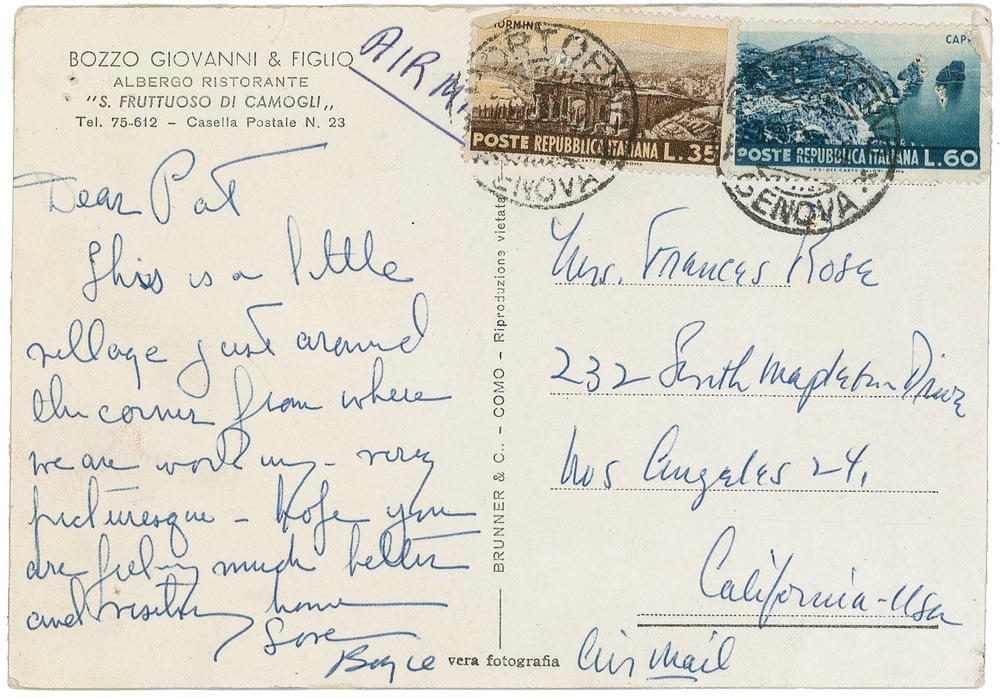 BOZZO GIOVANNI & FIGLIO
ALBERGO RISTORANTE
"S. FRUTTUOSO DI CAMOGLI"
Tel. 75-612 – Casella Postale N. 23
AIR
Dear Pat
This is a little
village just around
the corner from where
we are working – very
picturesque – hope you
are feeling much better
and home
Love
Boyce
BRUNNER & C.. - COMO - Riproduzione vietata
vera fotografia
POSTE REPUBBLICA ITALIANA L.35
CAPRI
POSTE REPUBBLICA ITALIANA L.60
GENOVA
GENOVA
Mrs. Frances Rose
232 South Mapleton Drive
Los Angeles 24,
California - USA
Air Mail